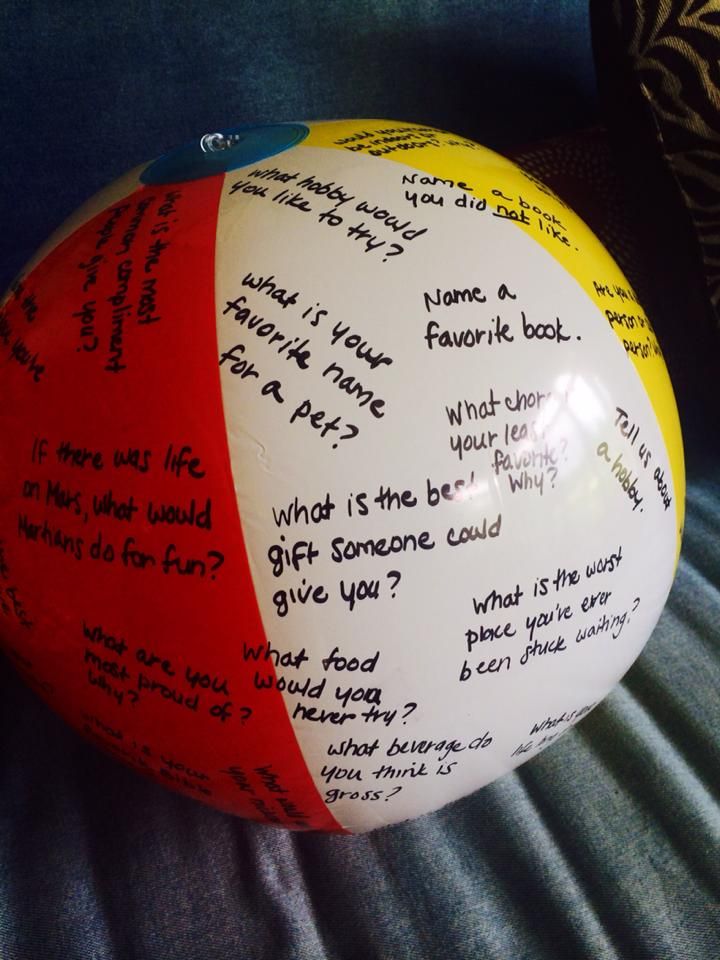 be indoors or
outdoors? Why?
What hobby would
you like to try?
Name a book
you did not like.
What is the most
common compliment
people give you?
What is your
favorite name
for a pet?
Name a
favorite book.
Are you
person or
person?
What
your
favorite?
Why?
Tell us about
a hobby.
If there was life
on Mars, what would
Martians do for fun?
What is the best
gift someone could
give you?
What is the worst
place you've ever
been stuck waiting?
What are you
most proud of?
Why?
What food
would you
never try?
What beverage do
you think is
gross?
What is your
Bible
What would
your
What is